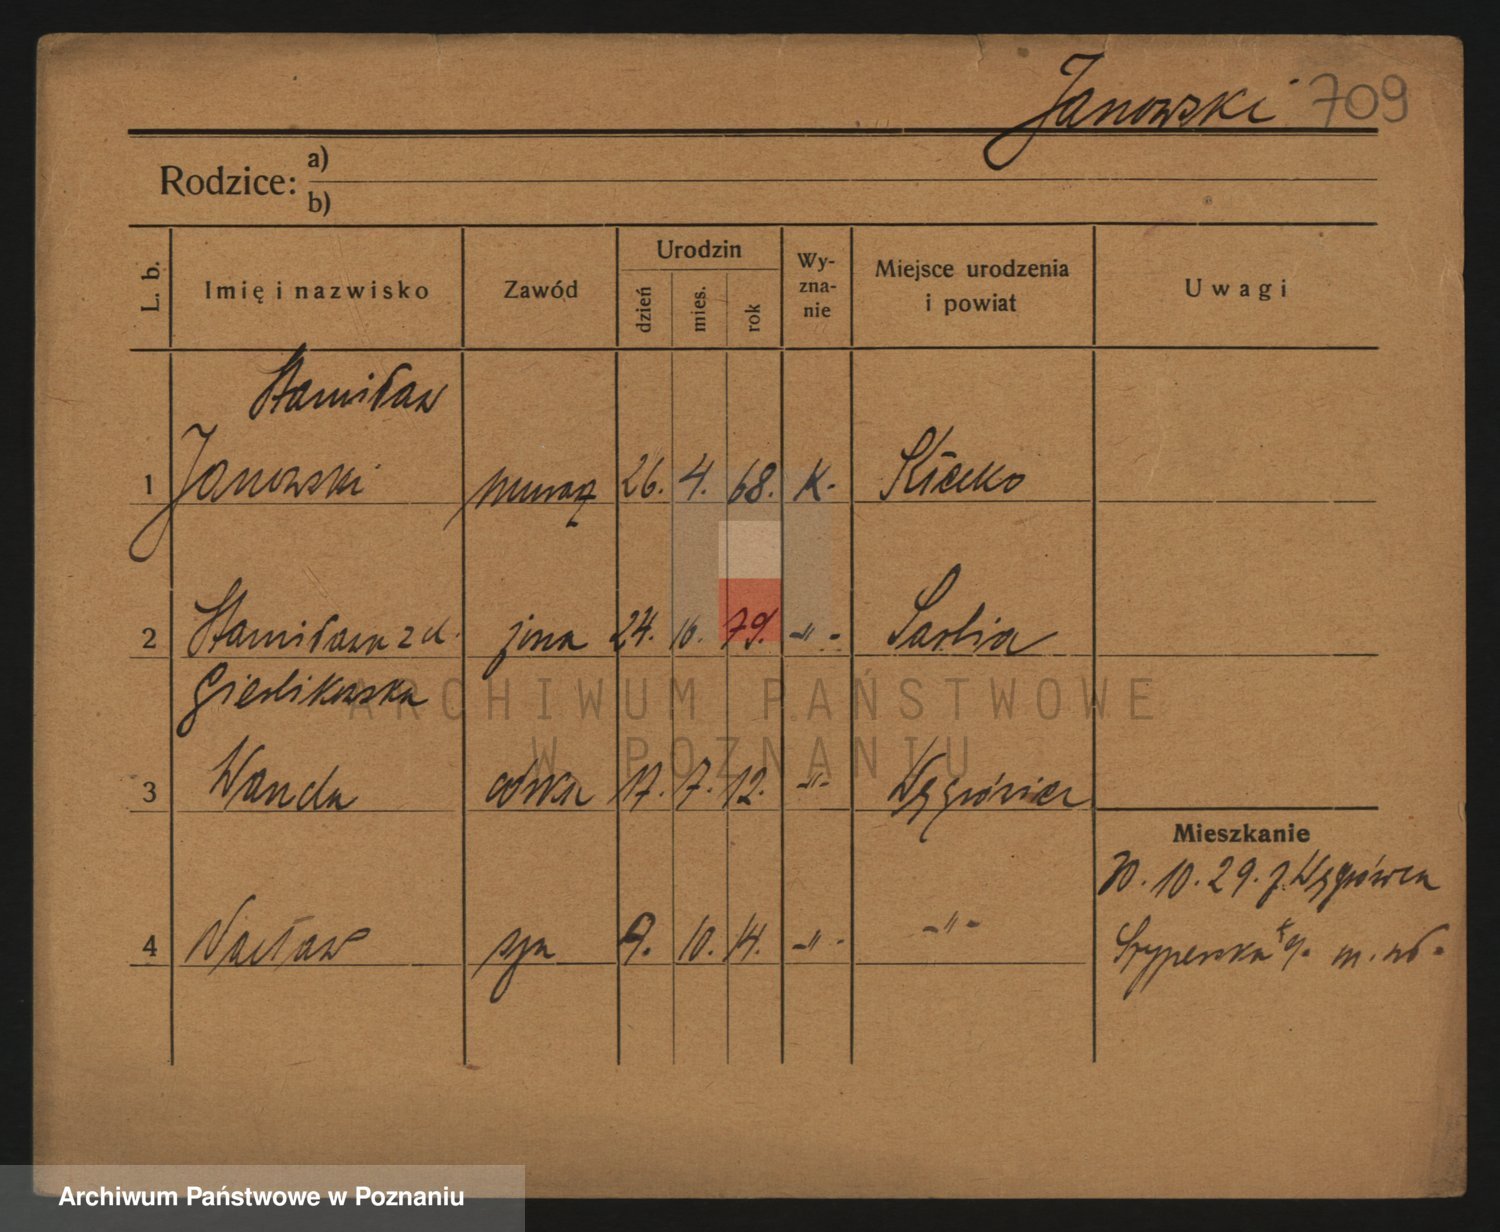 Janowski 709
Rodzice: a)
b)
L. b. Imię i nazwisko Zawód Urodzin dzień mies. rok Wy-zna-nie Miejsce urodzenia i powiat Uwagi
Stanisław
1 Janowski murarz 26. 4. 68. K. Kłecko
2 Stanisława z d. żona 24. 10. 79. -"- Sarbia
Gierlikowska
ARCHIWUM PAŃSTWOWE
W POZNANIU
3 Wanda córka 17. 7. 12. -"- Wągrówiec
Mieszkanie
10. 29. z Wągrówca
4 Wacław syn 9. 10. 14. -"- -"- m.
Archiwum Państwowe w Poznaniu